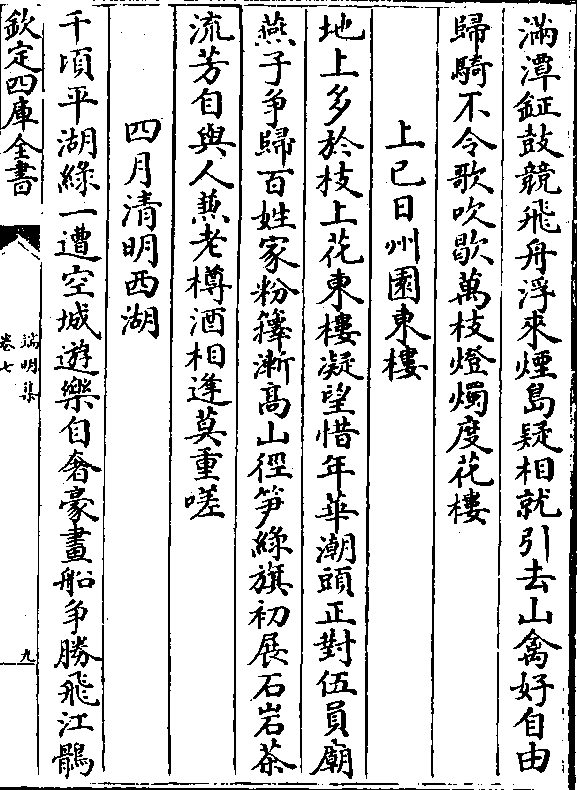 滿潭鉦鼓競飛舟浮來煙島疑相就引去山禽好自由
歸騎不令歌吹歇萬枝燈燭度花樓
上巳日州園東樓
地上多於枝上花東樓凝望惜年華潮頭正對伍員廟
燕子争歸百姓家粉籜漸髙山徑笋綠旗初展石岩茶
流芳自與人兼老樽酒相逢莫重嗟
四月清明西湖
千頃平湖綠一遭空城遊樂自奢豪畫船争勝飛江鶻
欽定四庫全書
端明集
卷七
九